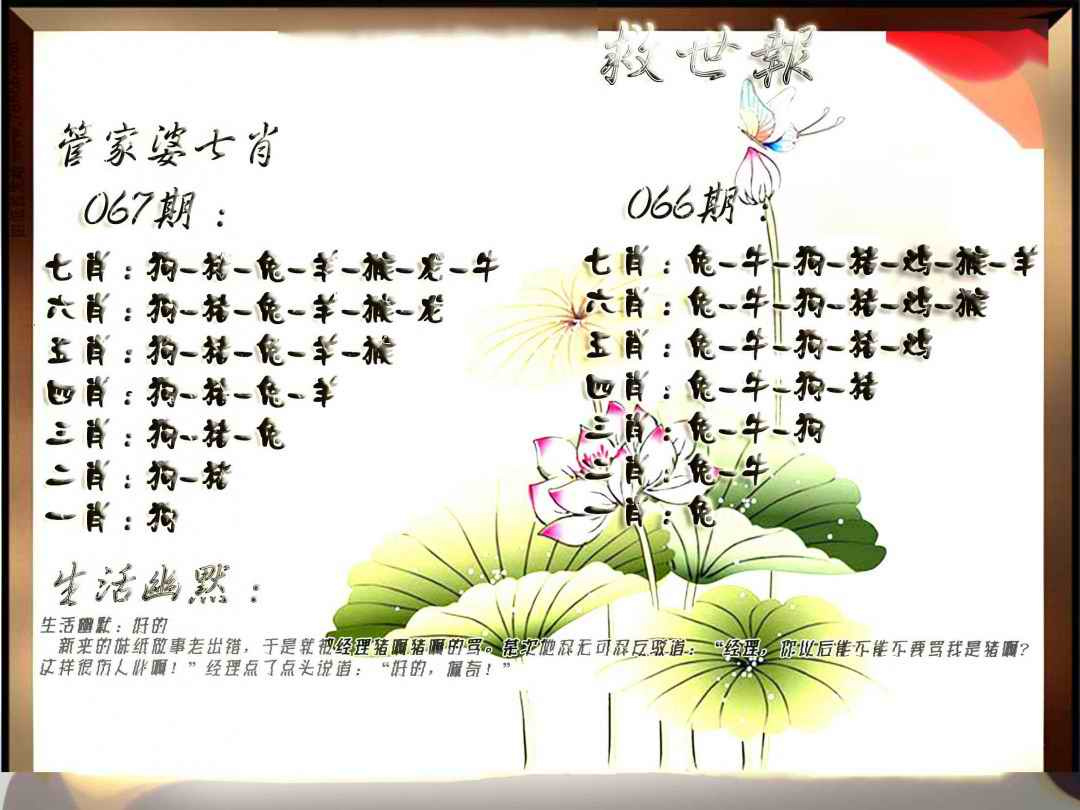 救世報
管家婆七肖
067期：
七肖：狗-猪-兔-羊-猴-龙-牛
六肖：狗-猪-兔-羊-猴-龙
五肖：狗-猪-兔-羊-猴
四肖：狗-猪-兔-羊
三肖：狗-猪-兔
二肖：狗-猪
一肖：狗
066期：
七肖：兔-牛-狗-猪-鸡-猴-羊
六肖：兔-牛-狗-猪-鸡-猴
五肖：兔-牛-狗-猪-鸡
四肖：兔-牛-狗-猪
三肖：兔-牛-狗
二肖：兔-牛
一肖：兔
生活幽默：
生活幽默：好的
新来的 做事老出错，于是就被经理猪啊猪啊的骂。 他忍无可忍反驳道：“经理，你以后能不能不要骂我是猪啊？
这样很伤人 啊！”经理点了点头说道：“好的，佩奇！”